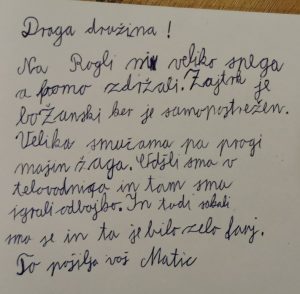 Draga družina!
Na Rogli ni veliko snega
a bomo zdržali. Zajtrk je
božanski ker je samopostrežen.
Velika smučama pa progi
majen žaga. Udšli sma v
telovodnica in tam sma
igrali odbojko. In tudi sakali
sma se in ta je bilo zelo fanj.
To pošilja vaš Matic